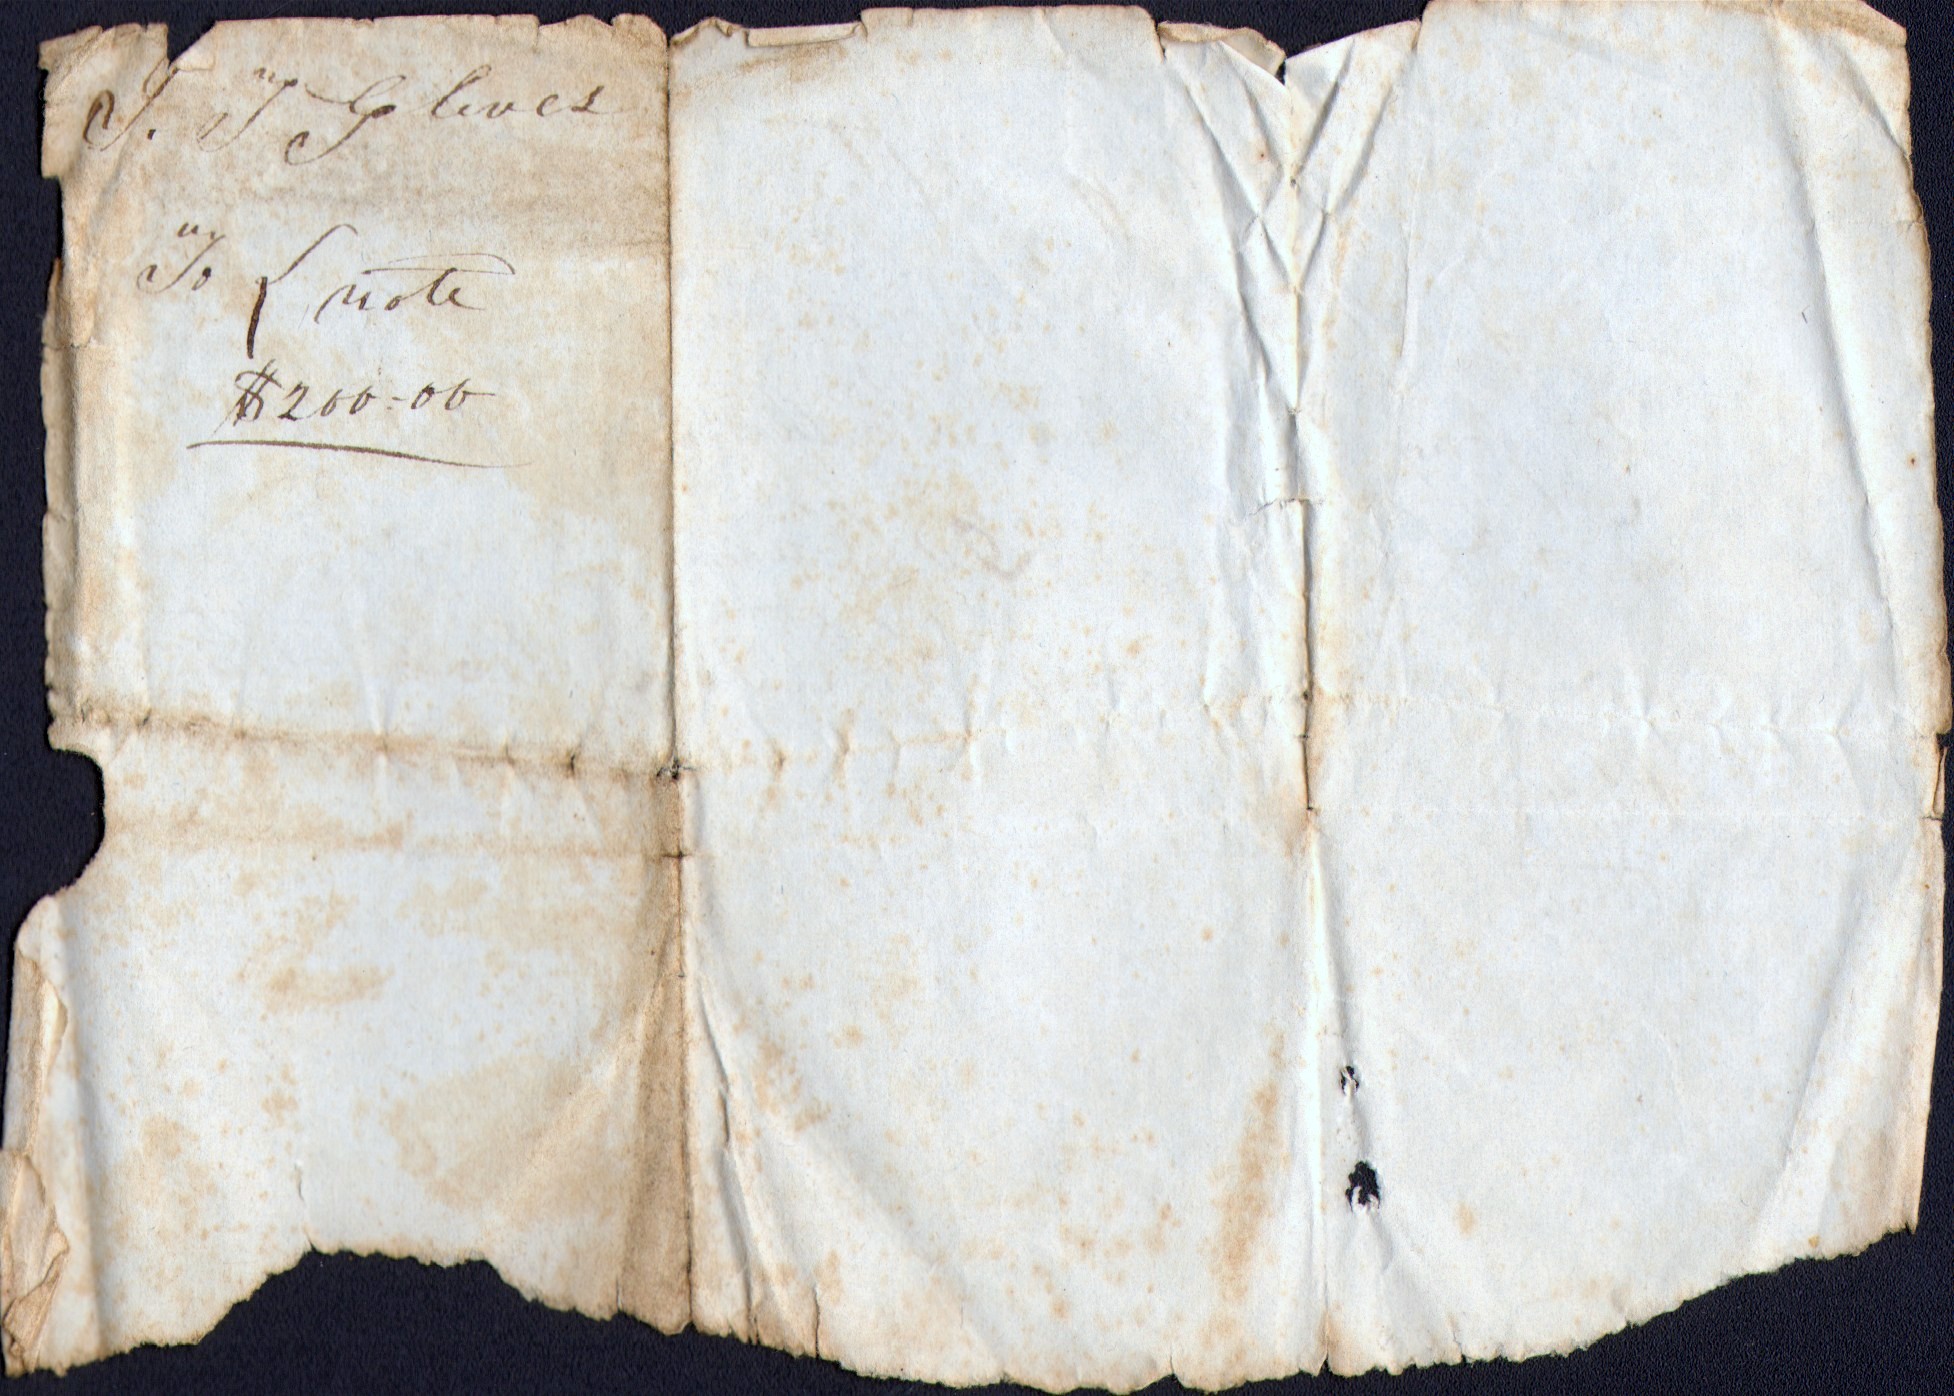 J. T. Glives
To { note
$200=00